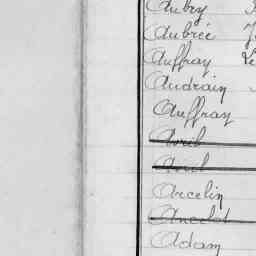 Aubry
Aubrée
Auffray
Audrain
Auffray
Avril
Avril
Arcelin
Ancelot
Adam